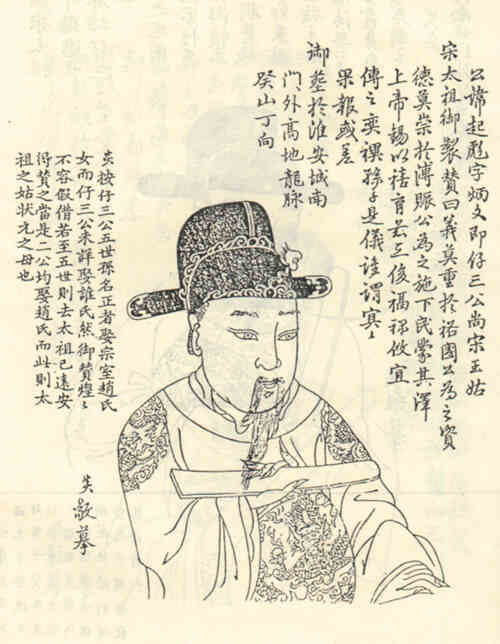 公諱起彪字炳文即仔三公尚宋王姑
宋太祖御製贊曰義莫重於裕國公為之資
德莫崇於溥賑公為之施下民蒙其澤
上帝錫以禧育茲三俊福祿攸宜
傳之奕禩孫子是儀誰謂冥〻
果報或差
御塟於淮安城南
門外高地龍脉
癸山丁向
炎按仔三公五世孫名正者娶宗室趙氏
女而仔三公未詳娶誰氏然御贊煌〻
不容假借若至五世則去太祖已遠安
得贊之當是二公均娶趙氏而此則太
祖之姑狀元之母也
炎敬摹